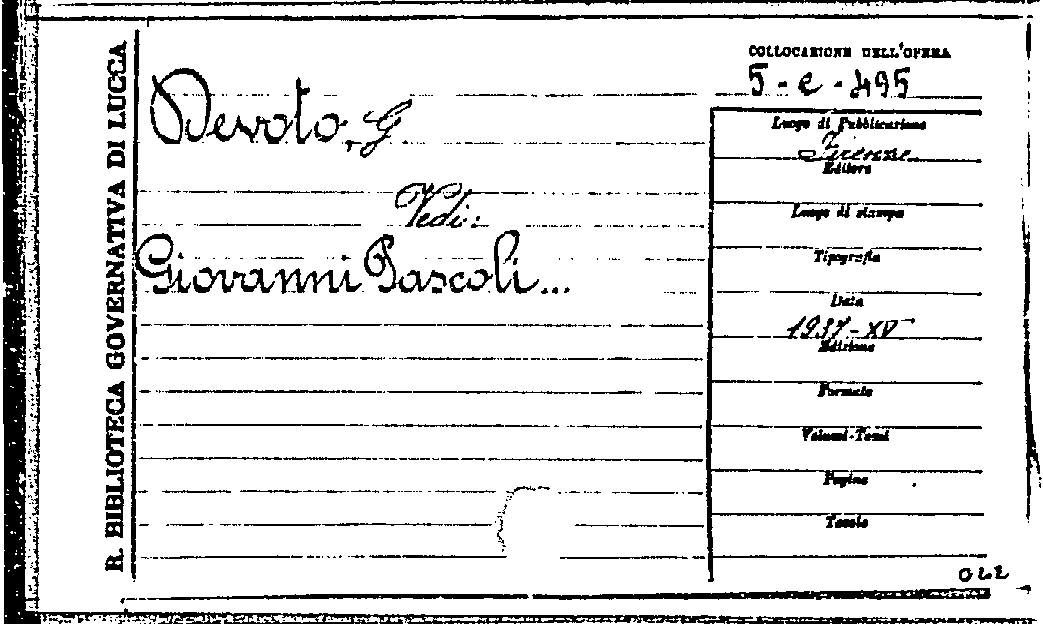 R. BIBLIOTECA GOVERNATIVA DI LUCCA
Devoto, G
Vedi:
Giovanni Pascoli...
COLLOCAZIONE DELL'OPERA
5-e-495
Luogo di Pubblicazione
Firenze
Editore
Luogo di stampa
Tipografia
Data
1937-XV
Edizione
Formato
Volumi-Tomi
Pagine
Tavole
022